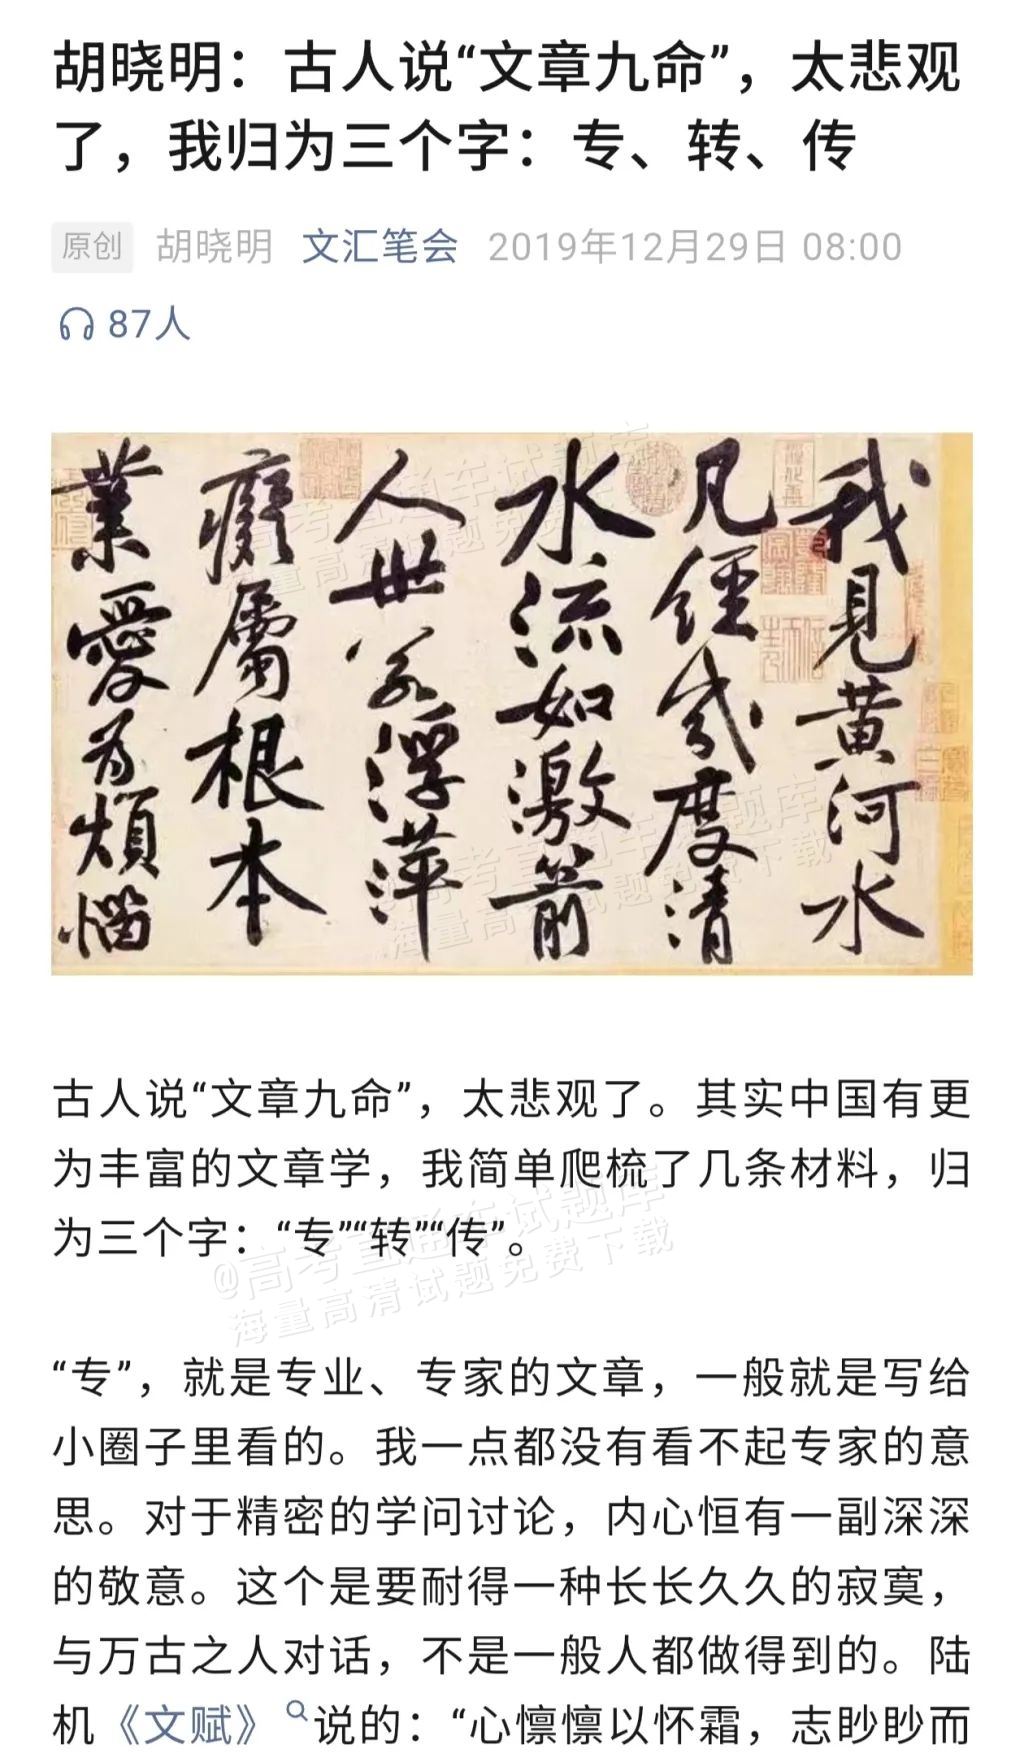 胡晓明：古人说“文章九命”，太悲观
了，我归为三个字：专、转、传
原创 胡晓明 文汇笔会 2019年12月29日 08:00
87人
我見黄河水
凡經幾度清
水流如激箭
人世若浮萍
癡屬根本
業愛為煩惱
古人说“文章九命”，太悲观了。其实中国有更
为丰富的文章学，我简单爬梳了几条材料，归
为三个字：“专”“转”“传”。
@高考直通车试题库
海量高清试题免费下载
“专”，就是专业、专家的文章，一般就是写给
小圈子里看的。我一点都没有看不起专家的意
思。对于精密的学问讨论，内心恒有一副深深
的敬意。这个是要耐得一种长长久久的寂寞，
与万古之人对话，不是一般人都做得到的。陆
机《文赋》说的：“心懔懔以怀霜，志眇眇而